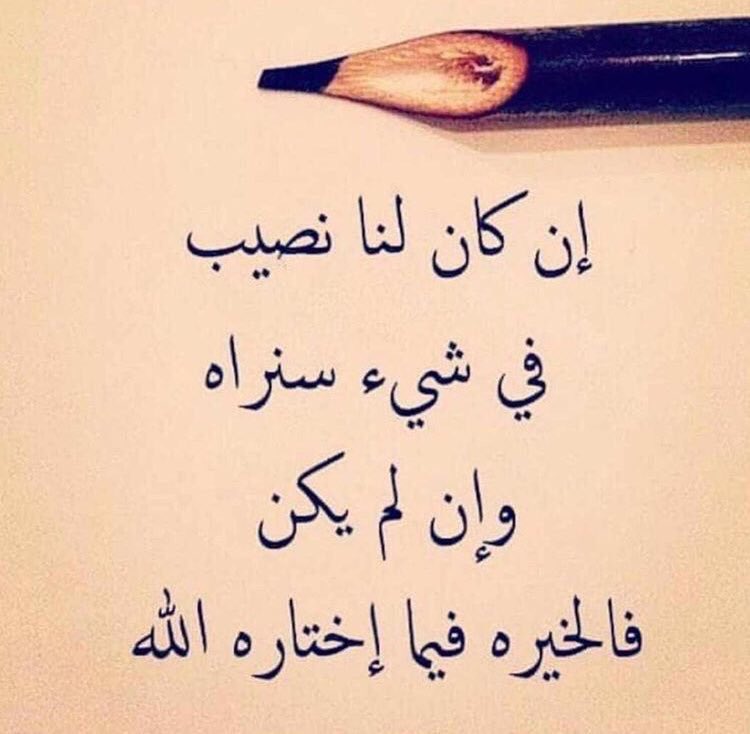 إن كان لنا نصيب
في شيء سنراه
وإن لم يكن
فالخيره فيما إختاره الله